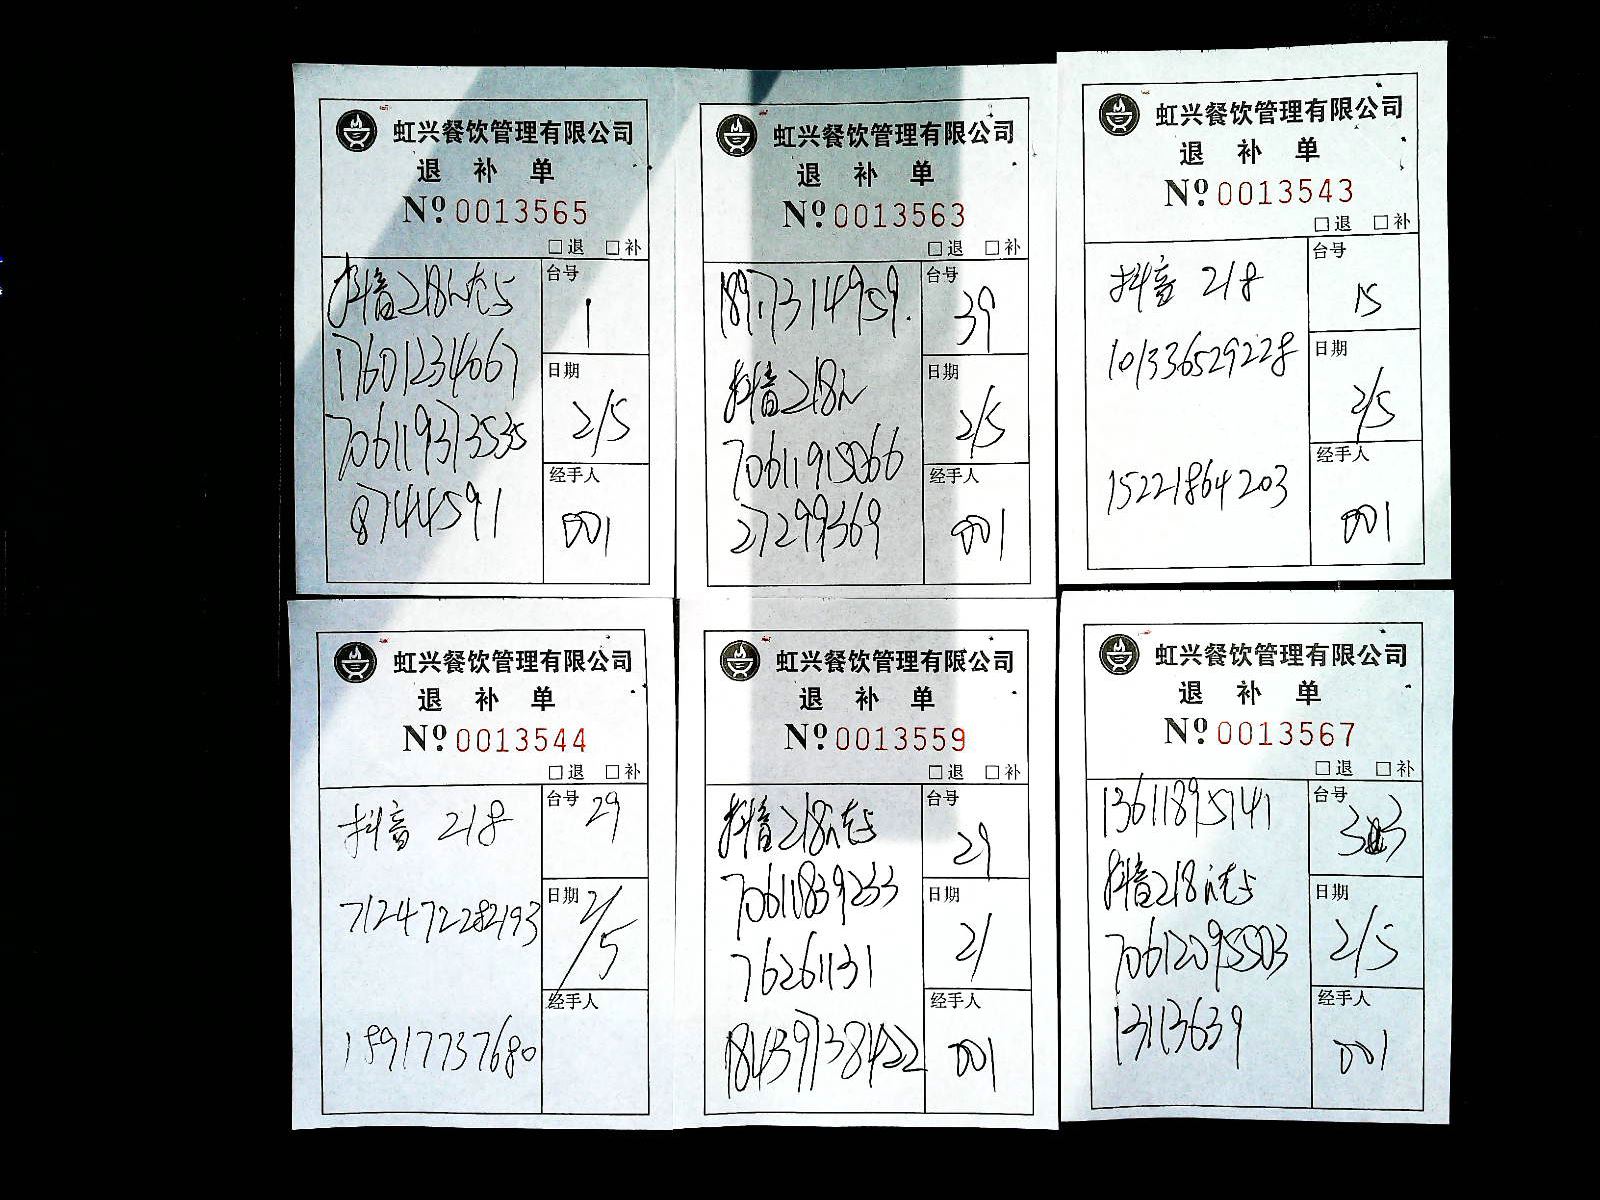 虹兴餐饮管理有限公司
退 补 单
№ 0013565
□退 □补
抖音218
17601234667
706119373535
8744591
台号
1
日期
2/5
经手人
001
虹兴餐饮管理有限公司
退 补 单
№ 0013563
□退 □补
18917314959.
抖音218
27299369
台号
39
日期
2/5
经手人
001
虹兴餐饮管理有限公司
退 补 单
№ 0013543
□退 □补
抖音 218
101336529228
15221864203
台号
15
日期
2/5
经手人
001
虹兴餐饮管理有限公司
退 补 单
№ 0013544
□退 □补
抖音 218
712472282193
15917737680
台号
29
日期
2/5
经手人
虹兴餐饮管理有限公司
退 补 单
№ 0013559
□退 □补
抖音218
70611839233
76261131
18439738422
台号
29
日期
2/
经手人
001
虹兴餐饮管理有限公司
退 补 单
№ 0013567
□退 □补
13611895141
抖音218
13113639
台号
日期
2/5
经手人
001